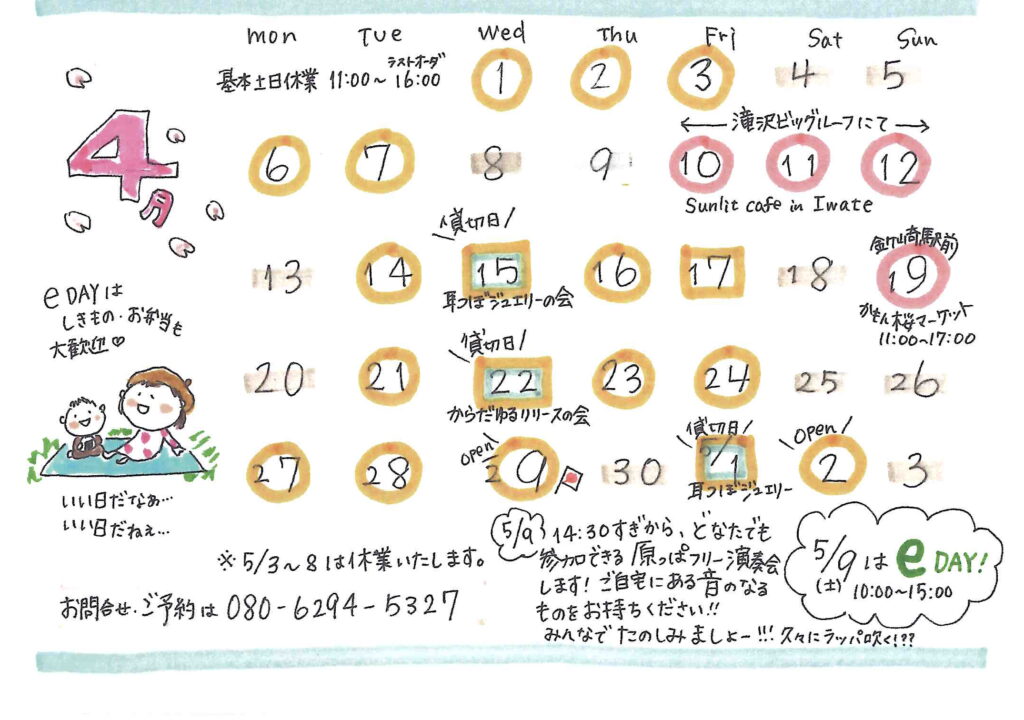 mon Tue Wed Thu Fri Sat Sun
基本土日休業 11:00~16:00
ラストオーダ
1 2 3 4 5
4月
←滝沢ビッグルーフにて→
6 7 8 9 10 11 12
Sunlit cafe in Iwate
貸切日
金ヶ崎駅前
13 14 15 16 17 18 19
耳つぼジュエリーの会
かねん桜マーケット
11:00~17:00
貸切日
20 21 22 23 24 25 26
からだゆるリリースの会
open
貸切日
open
27 28 29 30 5/1 2 3
耳つぼジュエリー
e DAYは
しきもの・お弁当も
大歓迎♡
いい日だなぁ…
いい日だねぇ…
※5/3~8は休業いたします。
お問合せ・ご予約は 080-6294-5327
5/9 14:30すぎから、どなたでも
参加できる原っぱフリー演奏会
します!ご自宅にある音のなる
ものをお持ちください!!
みんなでたのしみましょー!!! 久々にラッパ吹く!??
5/9は e DAY!
(土) 10:00~15:00